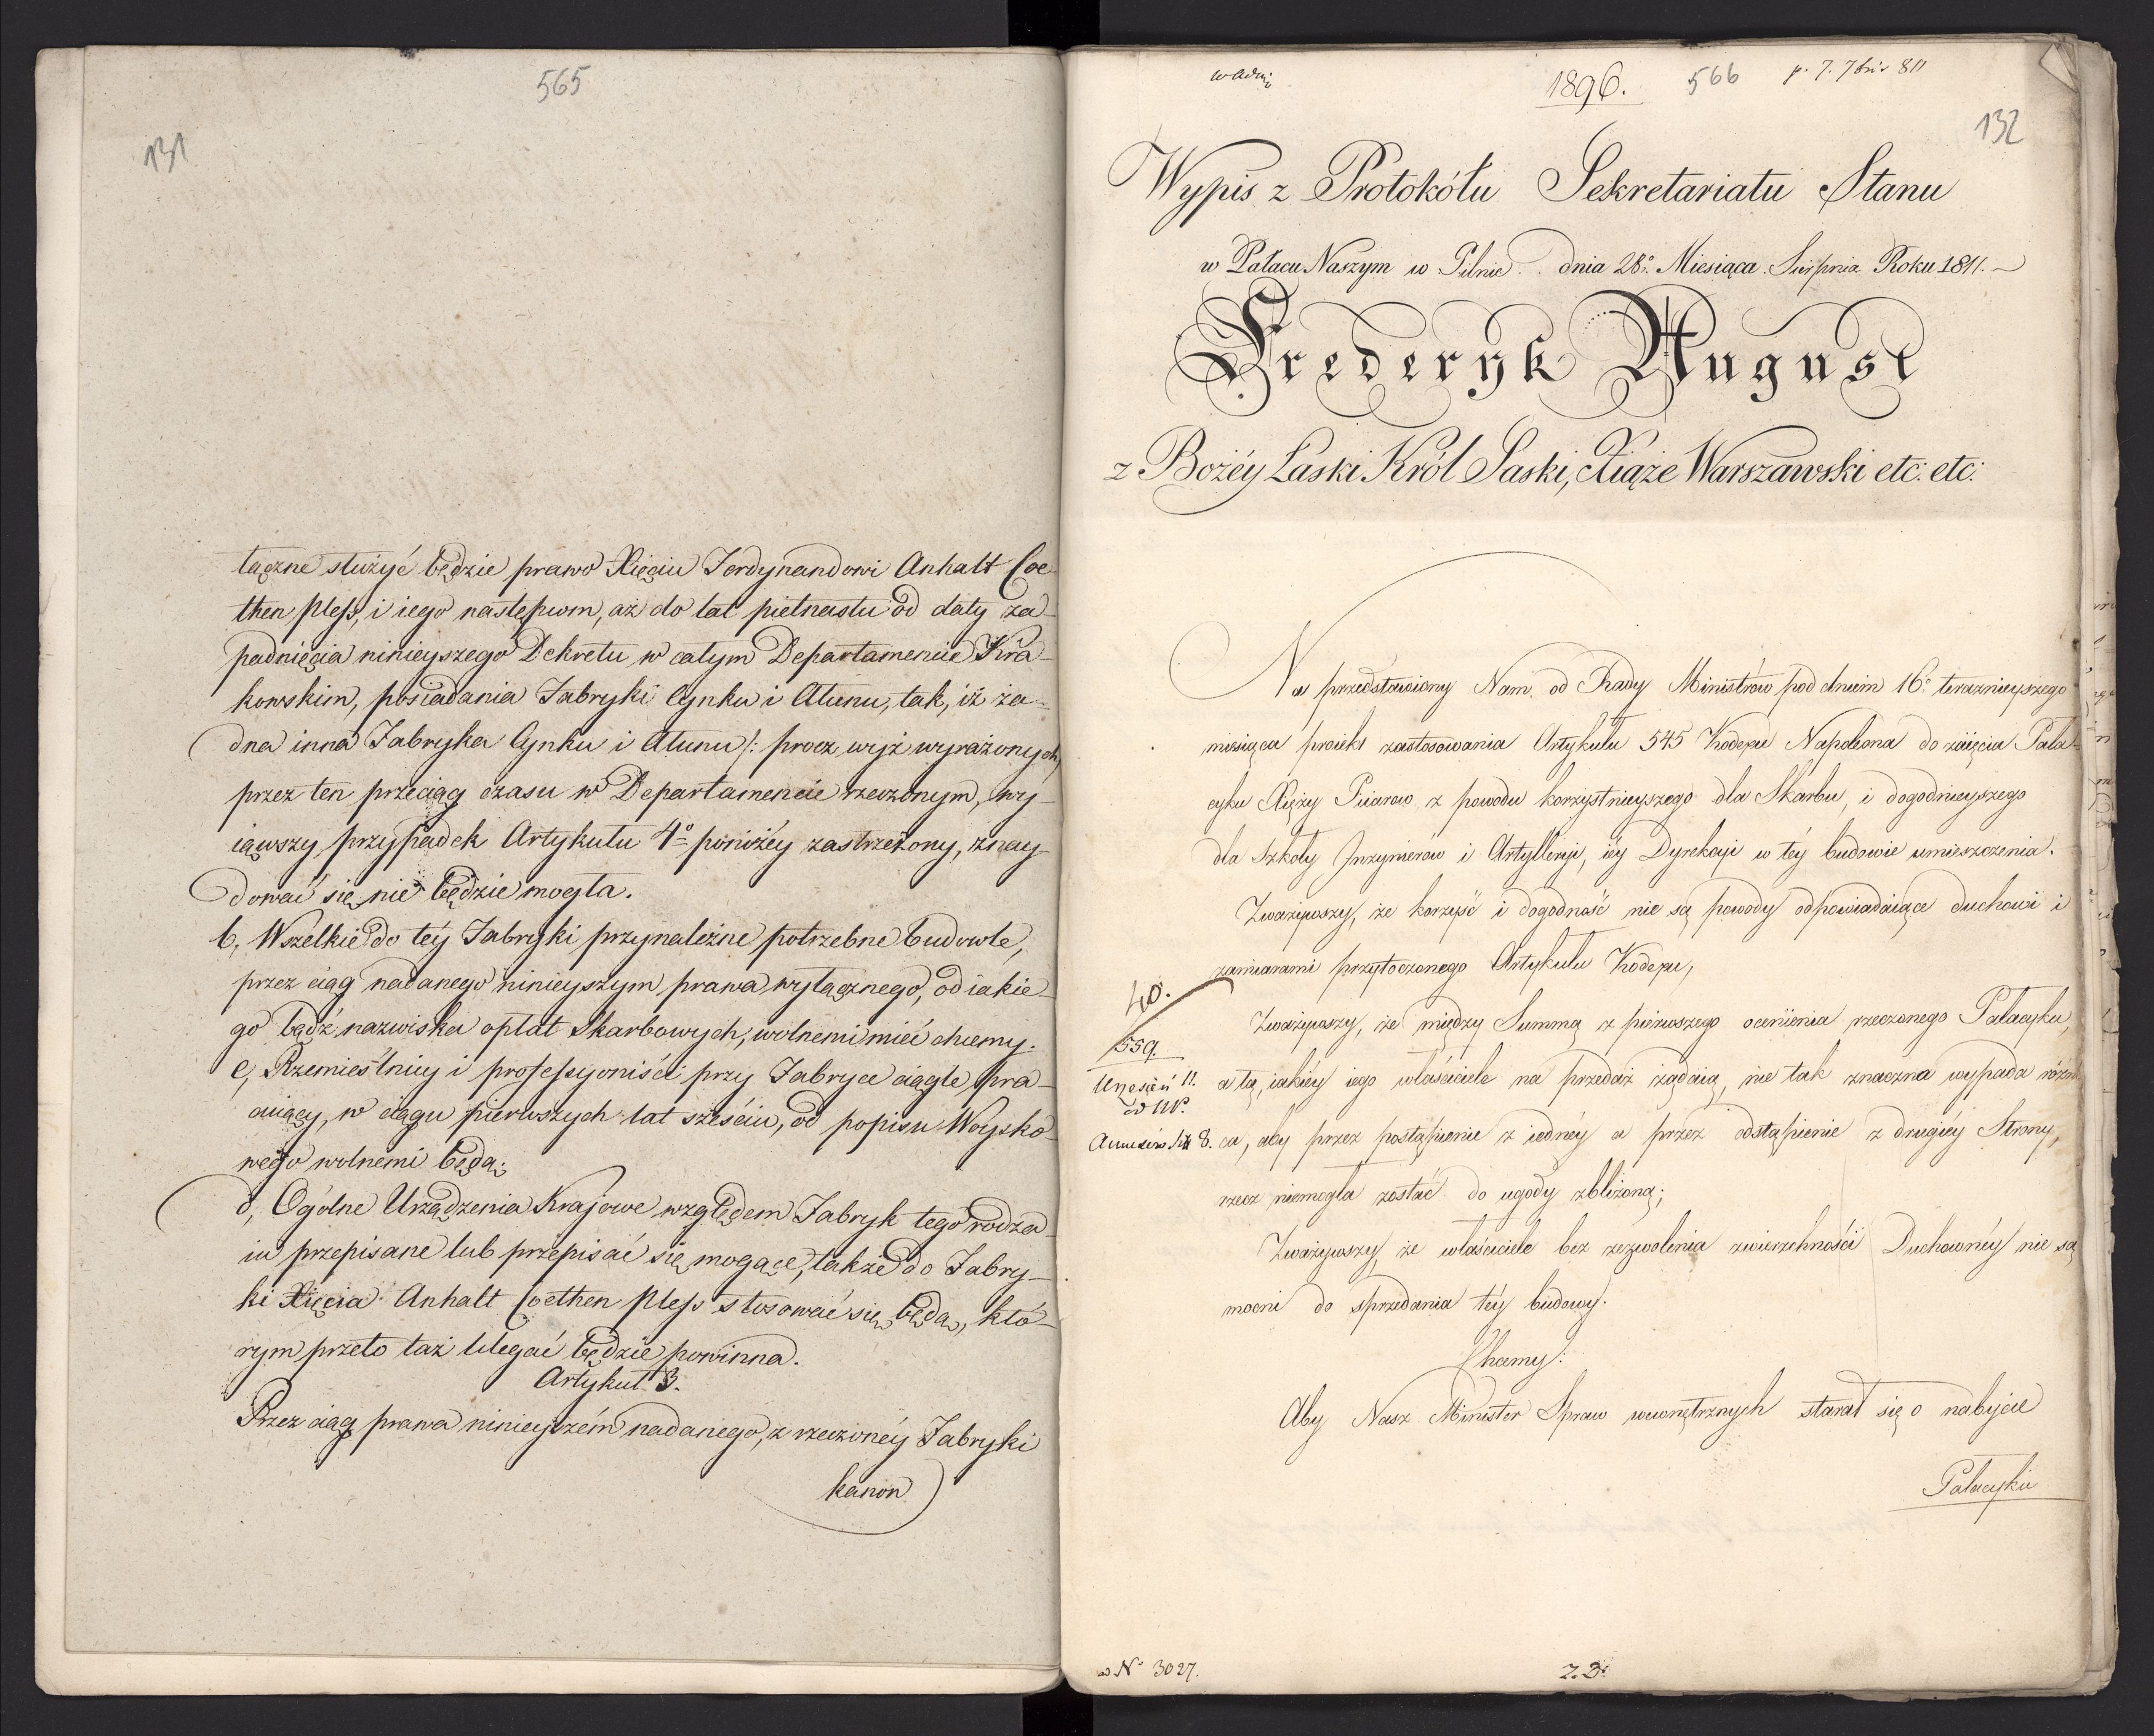 565
131
łączne służyć będzie prawo Xięciu Ferdynandowi Anhalt Coe-
then Pless, i iego następcom, aż do lat piętnastu od daty za-
padnięcia ninieyszego Dekretu w całym Departamencie Kra-
kowskim, posiadania Fabryki Cynku i Ałunu, tak, iż ża-
dna inna Fabryka Cynku i Ałunu /: procz wyż wyrażonych,
przez ten przeciąg czasu w Departamencie rzeczonym, wy-
iąwszy przypadek Artykułu 4º poniżéy zastrzeżony, znay-
dować się nie będzie mogła.
b, Wszelkie do téy Fabryki przynależne potrzebne budowle,
przez ciąg nadanego ninieyszym prawa wyłącznego, od iakie-
go bądź nazwiska opłat Skarbowych, wolnemi mieć chcemy.
c, Rzemieślnicy i professyoniści przy Fabryce ciągle pra-
cuiący, w ciągu pierwszych lat sześciu, od popisu Woysko-
wego wolnemi będą;
d, Ogólne Urządzenia Krajowe względem Fabryk tego rodza-
iu przepisane lub przepisać się mogące, także do Fabry-
ki Xięcia Anhalt Coethen Pless stosować się będą, któ-
rym przeto taż ulegać będzie powinna.
Artykuł 3.
Przez ciąg prawa ninieyszém nadanego, z rzeczonéy Fabryki
kanon
1896.
566
p. 7. 7bris 811
132
Wypis z Protokółu Sekretariatu Stanu
w Pałacu Naszym w Pilnie dnia 28º Miesiąca Sierpnia Roku 1811.
Frederyk August
z Bożéy Łaski Król Saski, Xiąże Warszawski etc: etc:
Na przedstawiony Nam od Rady Ministrów pod dniem 16º teraznieyszego
miesiąca proiekt zastosowania Artykułu 545 Kodexu Napoleona do zaięcia Pała-
cyku Xięży Piiarów z powodu korzystnieyszego dla Skarbu, i dogodnieyszego
dla Szkoły Inzynierow i Artylleryi, iéy Dyrekcyi w téy budowie umieszczenia.
Zważywszy, że korzyść i dogodność nie są powody odpowiadaiące duchowi i
zamiarami przytoczonego Artykułu Kodexu,
40.
559.
Zważywszy, że między Summą z pierwszego ocenienia rzeczonego Pałacyku,
a tą, iakiéy iego właściciele na przedaż żądaią, nie tak znaczna wypada różni-
ca, aby przez postąpienie z iednéy a przez odstąpienie z drugiéy Strony,
rzecz niemogła zostać do ugody zbliżoną;
Zważywszy, że właściciele bez zezwolenia zwierzchności Duchownéy nie są
mocni do sprzedania téy budowy.
Chcemy:
Aby Nasz Minister Spraw wewnętrznych starał się o nabycie
Pałacyku
Nº 3027.